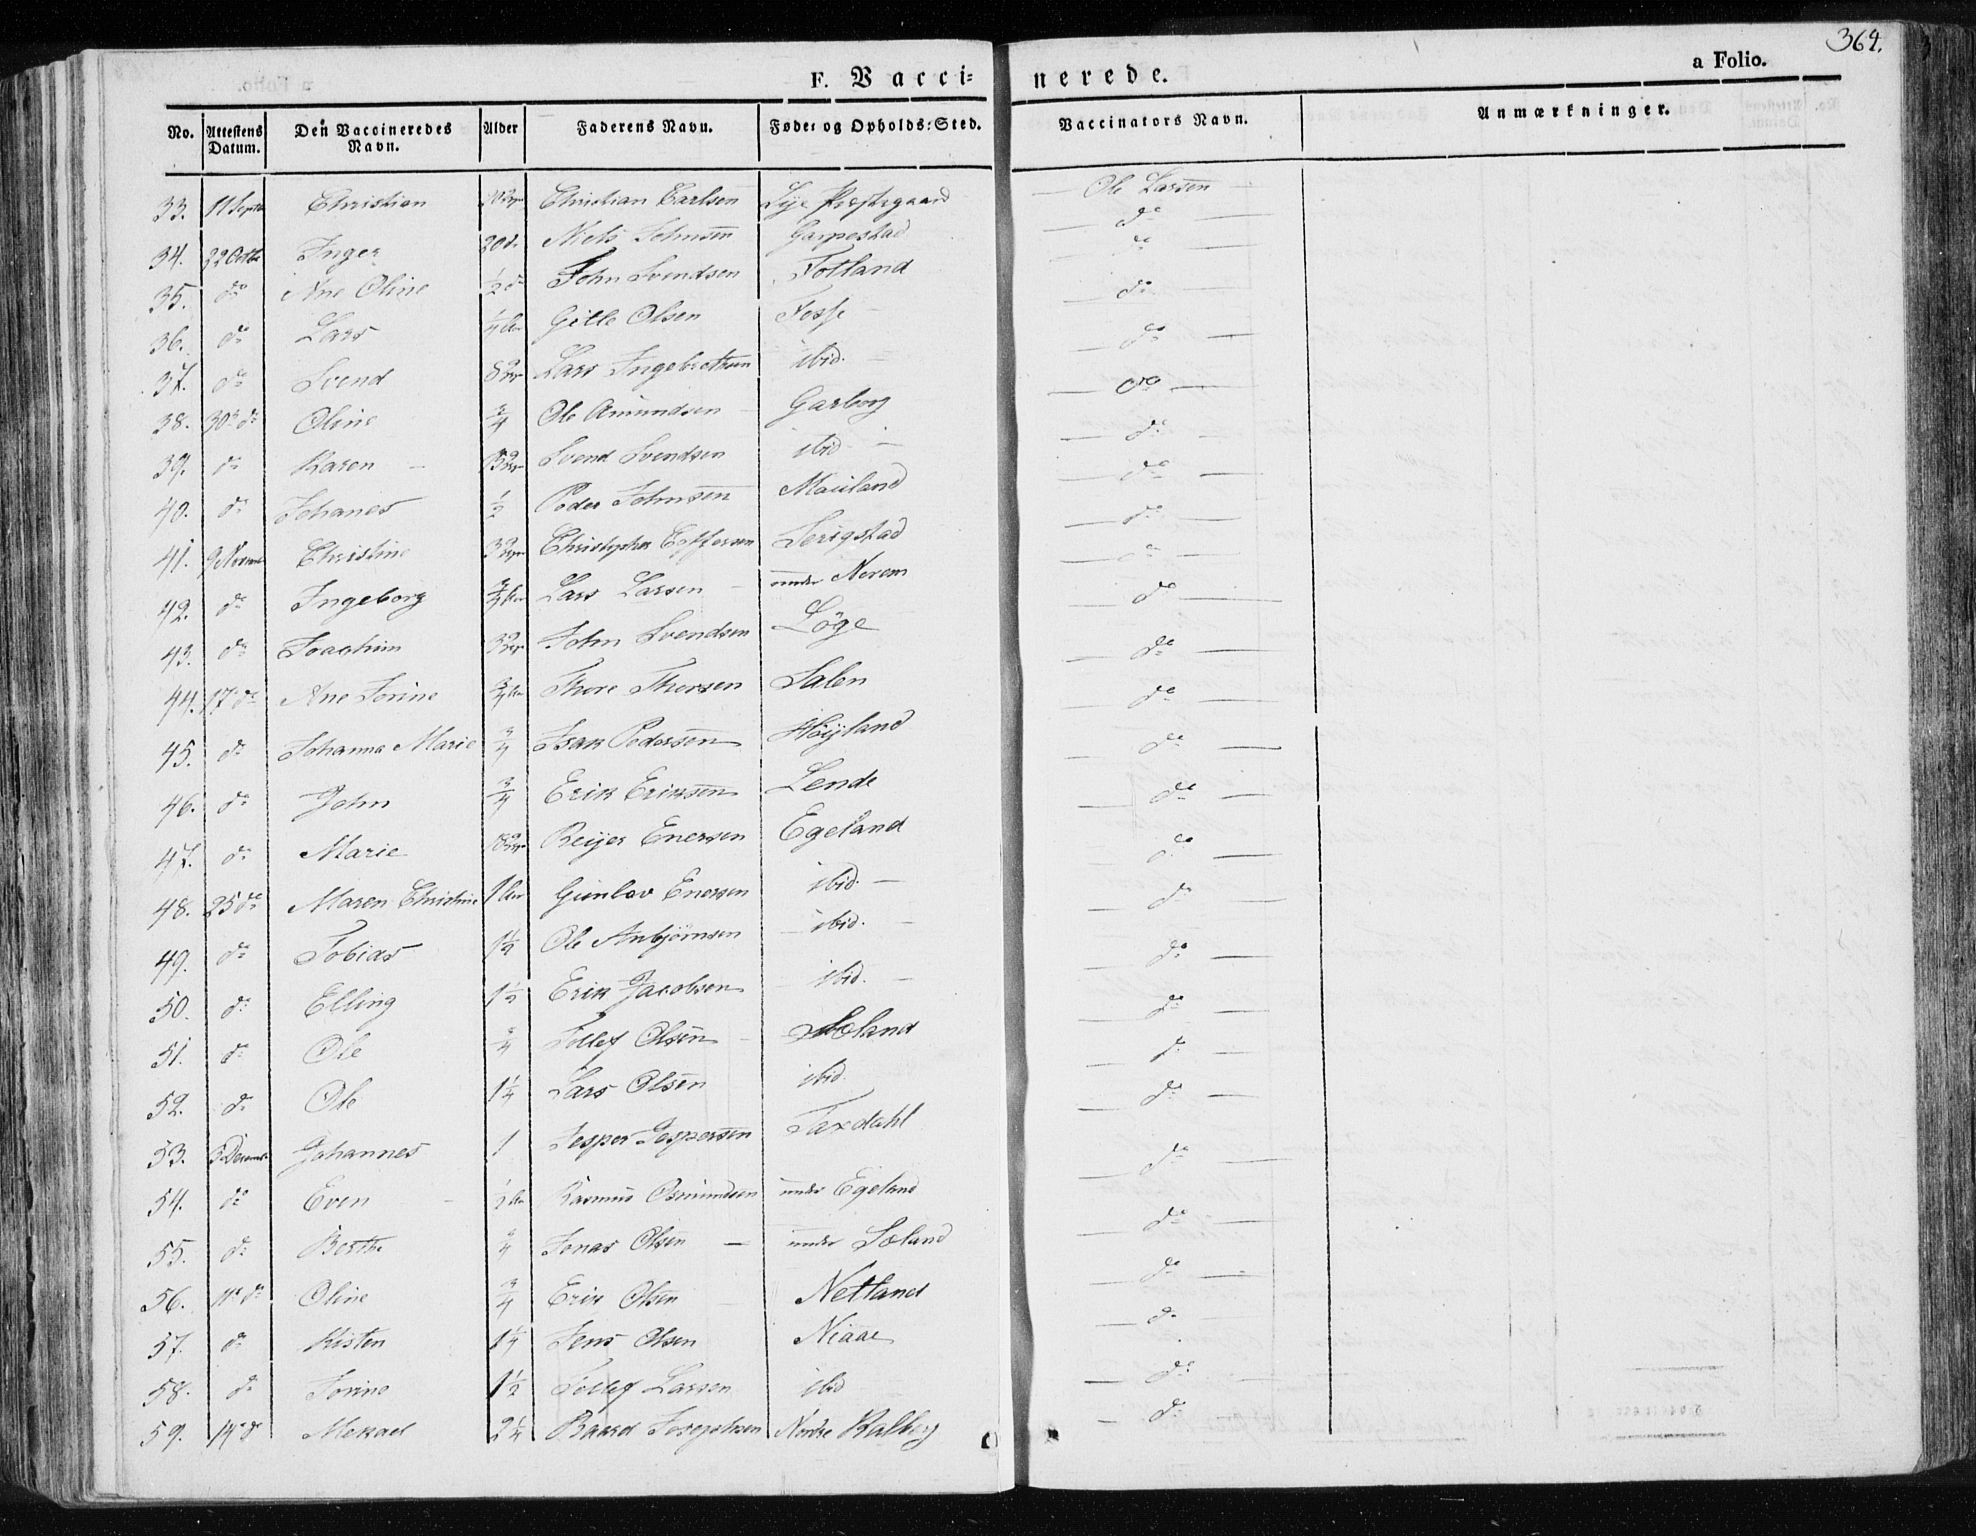 364.
F. Vaccinerede. a Folio.
No. Attestens Datum. Den Vaccineredes Navn. Alder Faderens Navn. Føde: og Opholds: Sted. Vaccinators Navn. Anmærkninger.
33. 11 Septbr Christian Christian Carlsen Lye Præstegaard Ole Larsen
34. 22 Octbr Inger Niels Johnsen Garpestad do
35. do Ane Oline 1/2 do John Svendsen Totland do
36. do Lars 1/4 Gitle Olsen Fosse do
37. do Svend Lars Ingebrethsen ibid. do
38. 30 do Oline 3/4 Ole Amundsen Garborg do
39. do Karen Svend Svendsen ibid do
40. do Johanes 1/2 Peder Johnsen Mauland do
41. 9 Novemb Christine Christopher Serigstad do
42. do Ingeborg 3/4 Lars Larsen under Nerem do
43. do Joachim John Svendsen Löge do
44. 17 do Ane Torine 3/4 Thore Thorsen Salen do
45. do Johanna Marie 3/4 Isak Pedersen Høyland do
46. do John 3/4 Erik Eriksen Lende do
47. do Marie Reijer Enersen Egeland do
48. 25 do Maren Christine 1 Gunlov Enersen ibid. do
49. do Tobias 1 1/2 Ole Anbjörnsen ibid. do
50. do Elling 1 1/2 Erik Jacobsen ibid. do
51. do Ole 3/4 Tollef Olsen Søland do
52. do Ole 1 1/4 Lars Olsen ibid. do
53. Decemb. Johannes 1 Jesper Jespersen Taxdahl do
54. do Even 1/2 Rasmus Osmundsen under Egeland do
55. do Berthe 3/4 Jonas Olsen under Søland do
56. 11 do Oline 3/4 Erik Olsen Netland do
57. do Kisten 1 1/4 Jens Olsen Niaae do
58. do Torine 1 1/2 Tollef Larsen ibid do
59. 14 do Mekael 2 1/4 Baard Josephsen Nordre Kalberg do